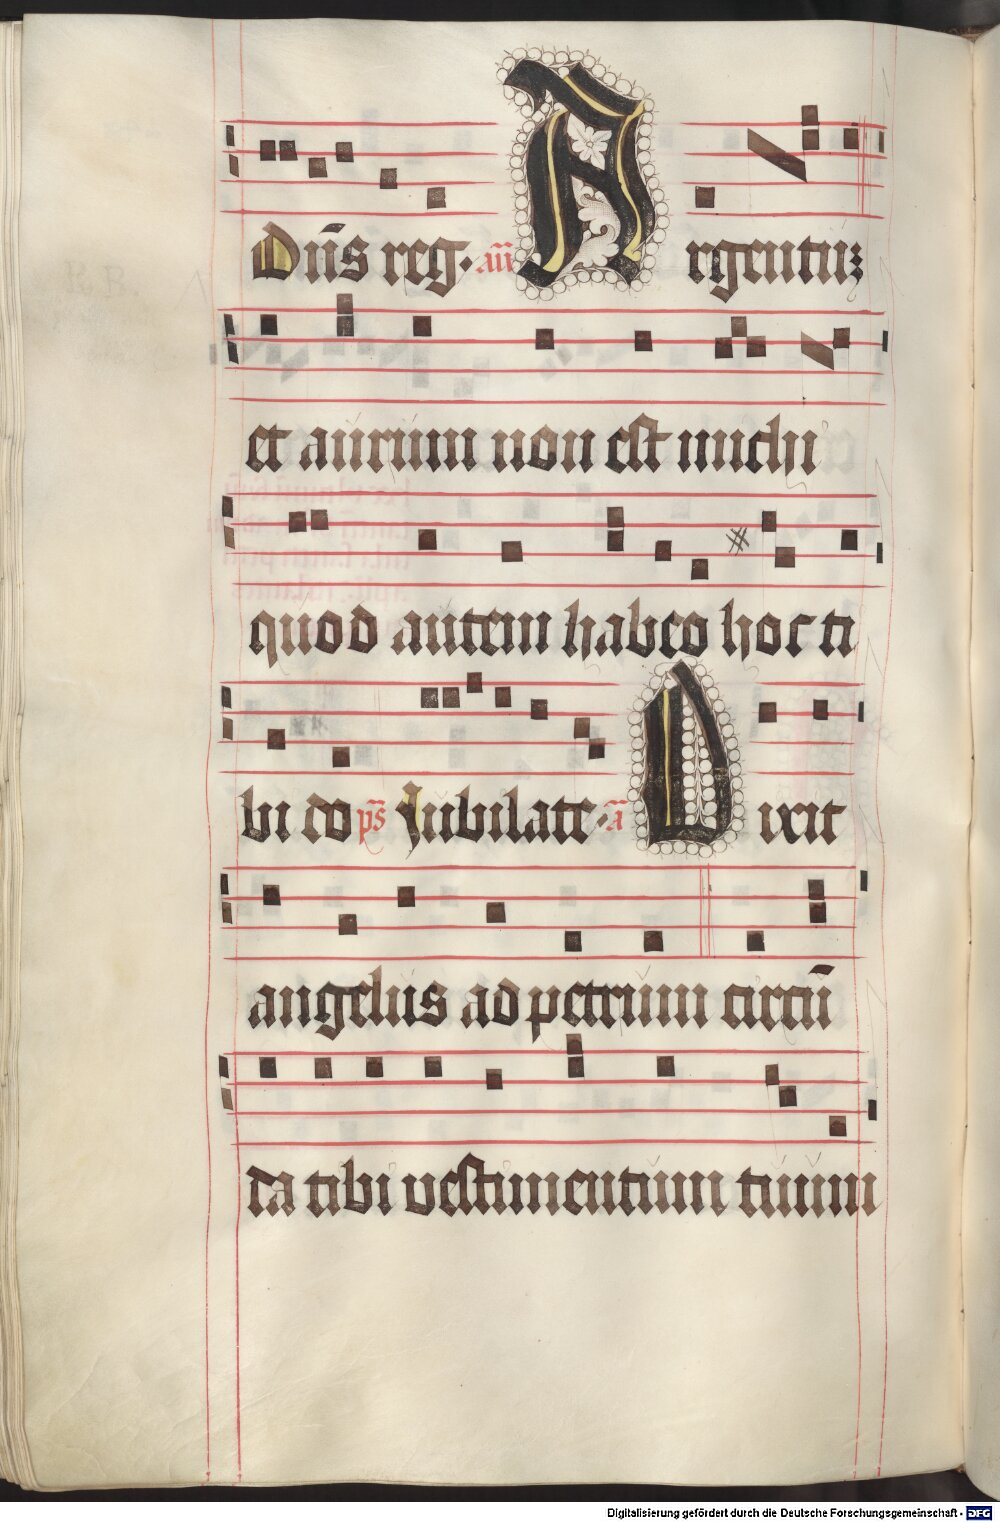 Dn̄s reg. an̄ Argentūʒ
et aurum non est michi
quod autem habeo hoc ti
bi do ps̄ Jubilate. ā Dixit
angelus ad petrum circū
da tibi vestimentum tuum
Digitalisierung gefördert durch die Deutsche Forschungsgemeinschaft - DFG